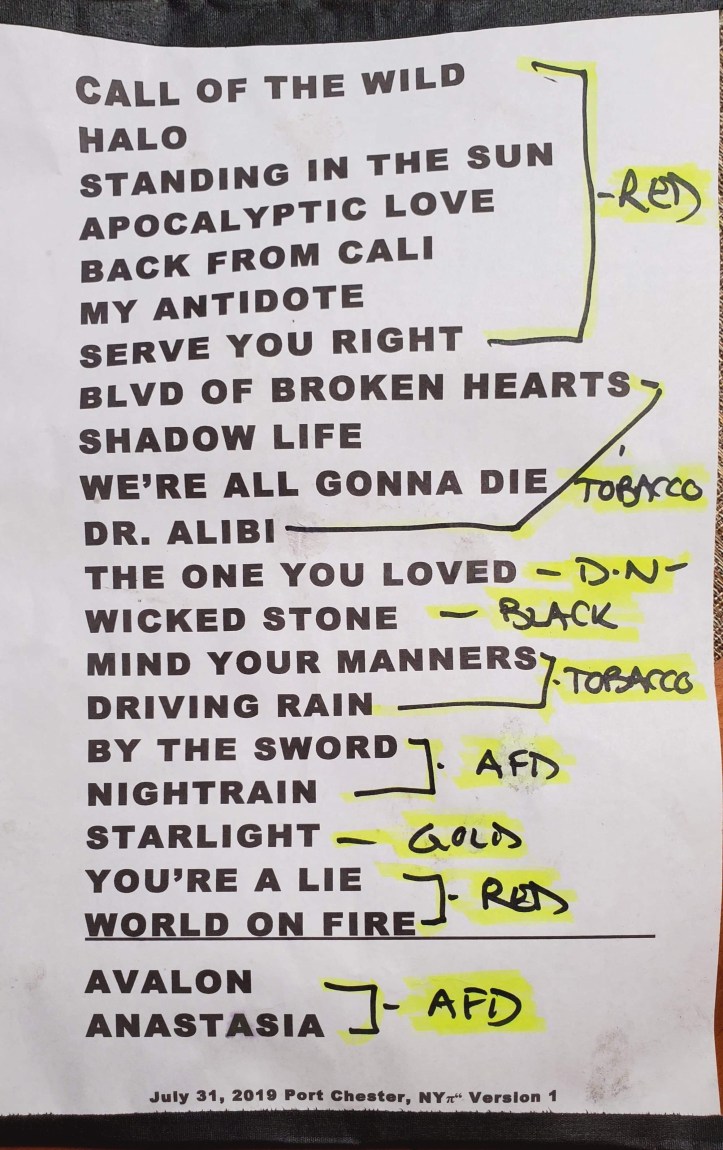 CALL OF THE WILD
HALO
STANDING IN THE SUN
APOCALYPTIC LOVE - RED
BACK FROM CALI
MY ANTIDOTE
SERVE YOU RIGHT
BLVD OF BROKEN HEARTS
SHADOW LIFE
WE'RE ALL GONNA DIE TOBACCO
DR. ALIBI
THE ONE YOU LOVED - D.N-
WICKED STONE - BLACK
MIND YOUR MANNERS - TOBACCO
DRIVING RAIN
BY THE SWORD - AFD
NIGHTRAIN
STARLIGHT - GOLD
YOU'RE A LIE - RED
WORLD ON FIRE
AVALON - AFD
ANASTASIA
July 31, 2019 Port Chester, NYπ“ Version 1